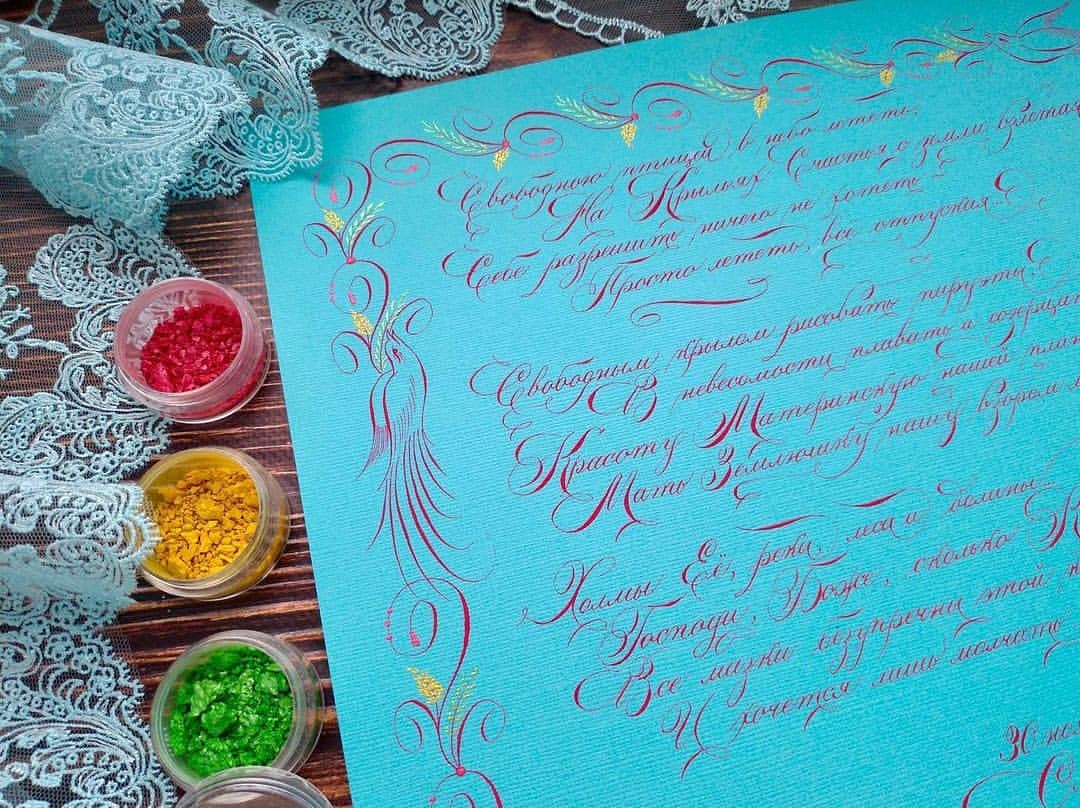 Свободною птицей в небо лететь,
На Крыльях Счастья с земли взлетая
Себе разрешить ничего не хотеть
Просто лететь, всё отпуская...
Свободным крылом рисовать пируэты
В невесомости плавать и созерцат
Красоту Материнскую нашей план
Мать Землюшку нашу взором
Холмы Её, реки, леса и долины...
Господи, Боже, сколько
Все мазки безупречны этой
И хочется лишь молчать
30 но